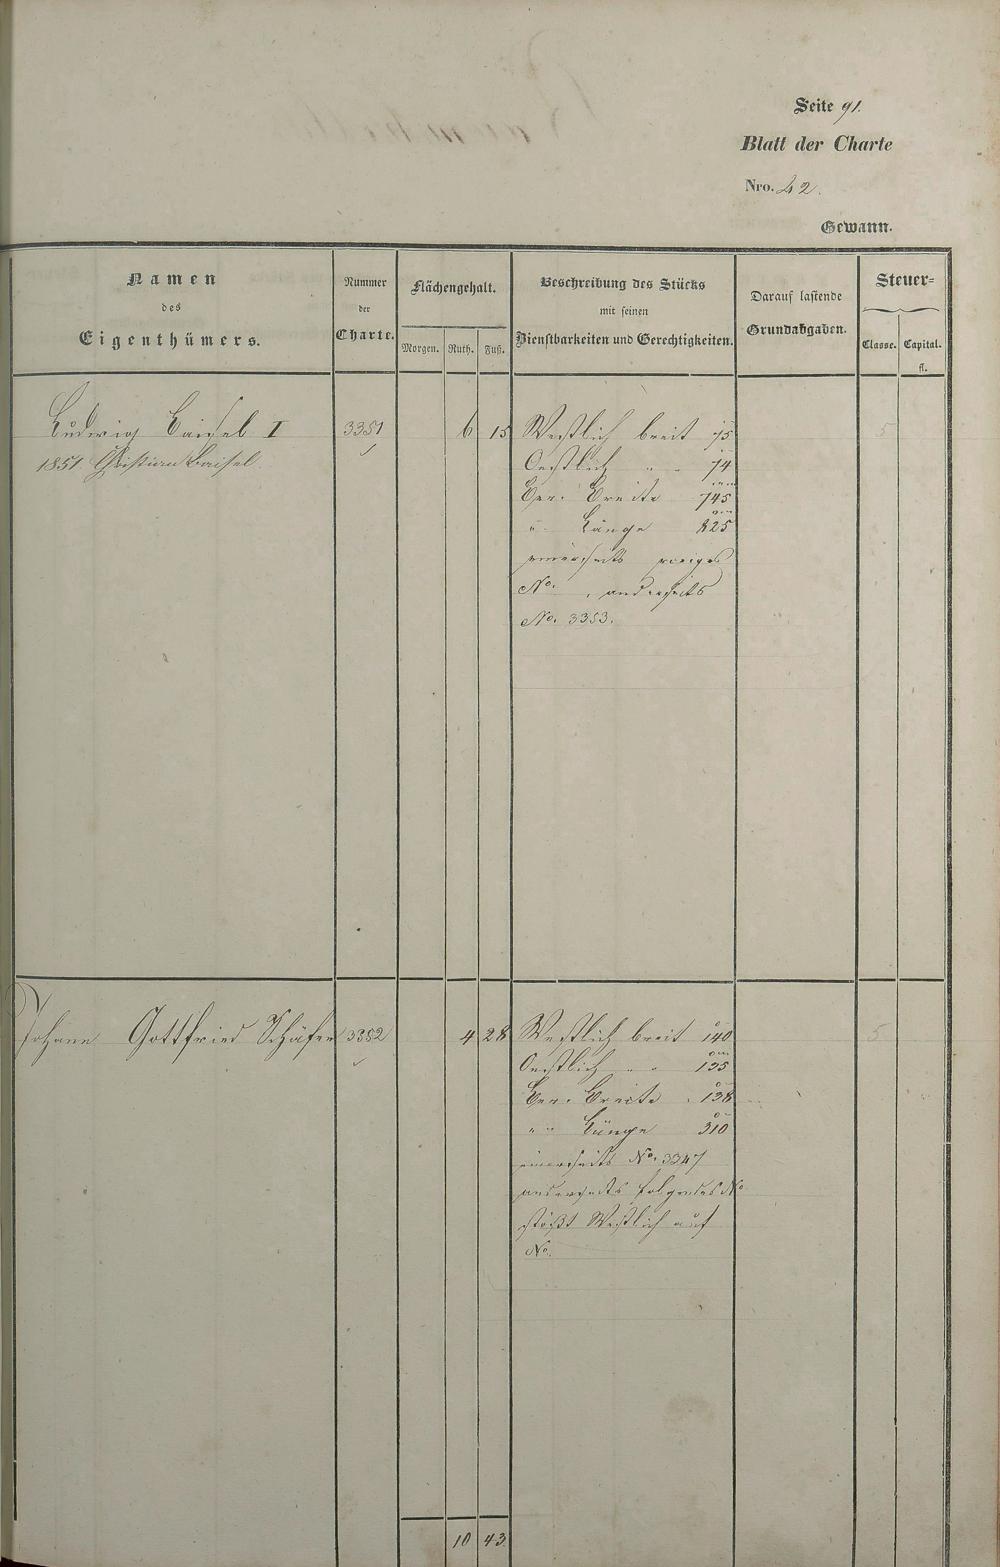 Seite 91.
Blatt der Charte
Nro. 42.
Gewann.
Namen
des
Eigenthümers.
Nummer
der
Charte.
Flächengehalt.
Morgen. Ruth. Fuß.
Beschreibung des Stücks
mit seinen
Dienstbarkeiten und Gerechtigkeiten.
Darauf lastende
Grundabgaben.
Steuer=
Classe. Capital.
fl.
Ludwig Baisel I 3351 6 15 Westlich breit 75 5
1851 Christian Baisel. Oestlich " - 74
Ber. Breite 745
" Länge 825
einerseits voriges
No. , anderseits
No. 3353.
Johann Gottfried Schäfer 3352 4 28 Westlich breit 140 5
Oestlich " " 135
Ber. Breite 138
" " Länge 310
einerseits No. 3347
anderseits folgendes No
stößt Westlich auf
No.
10 43